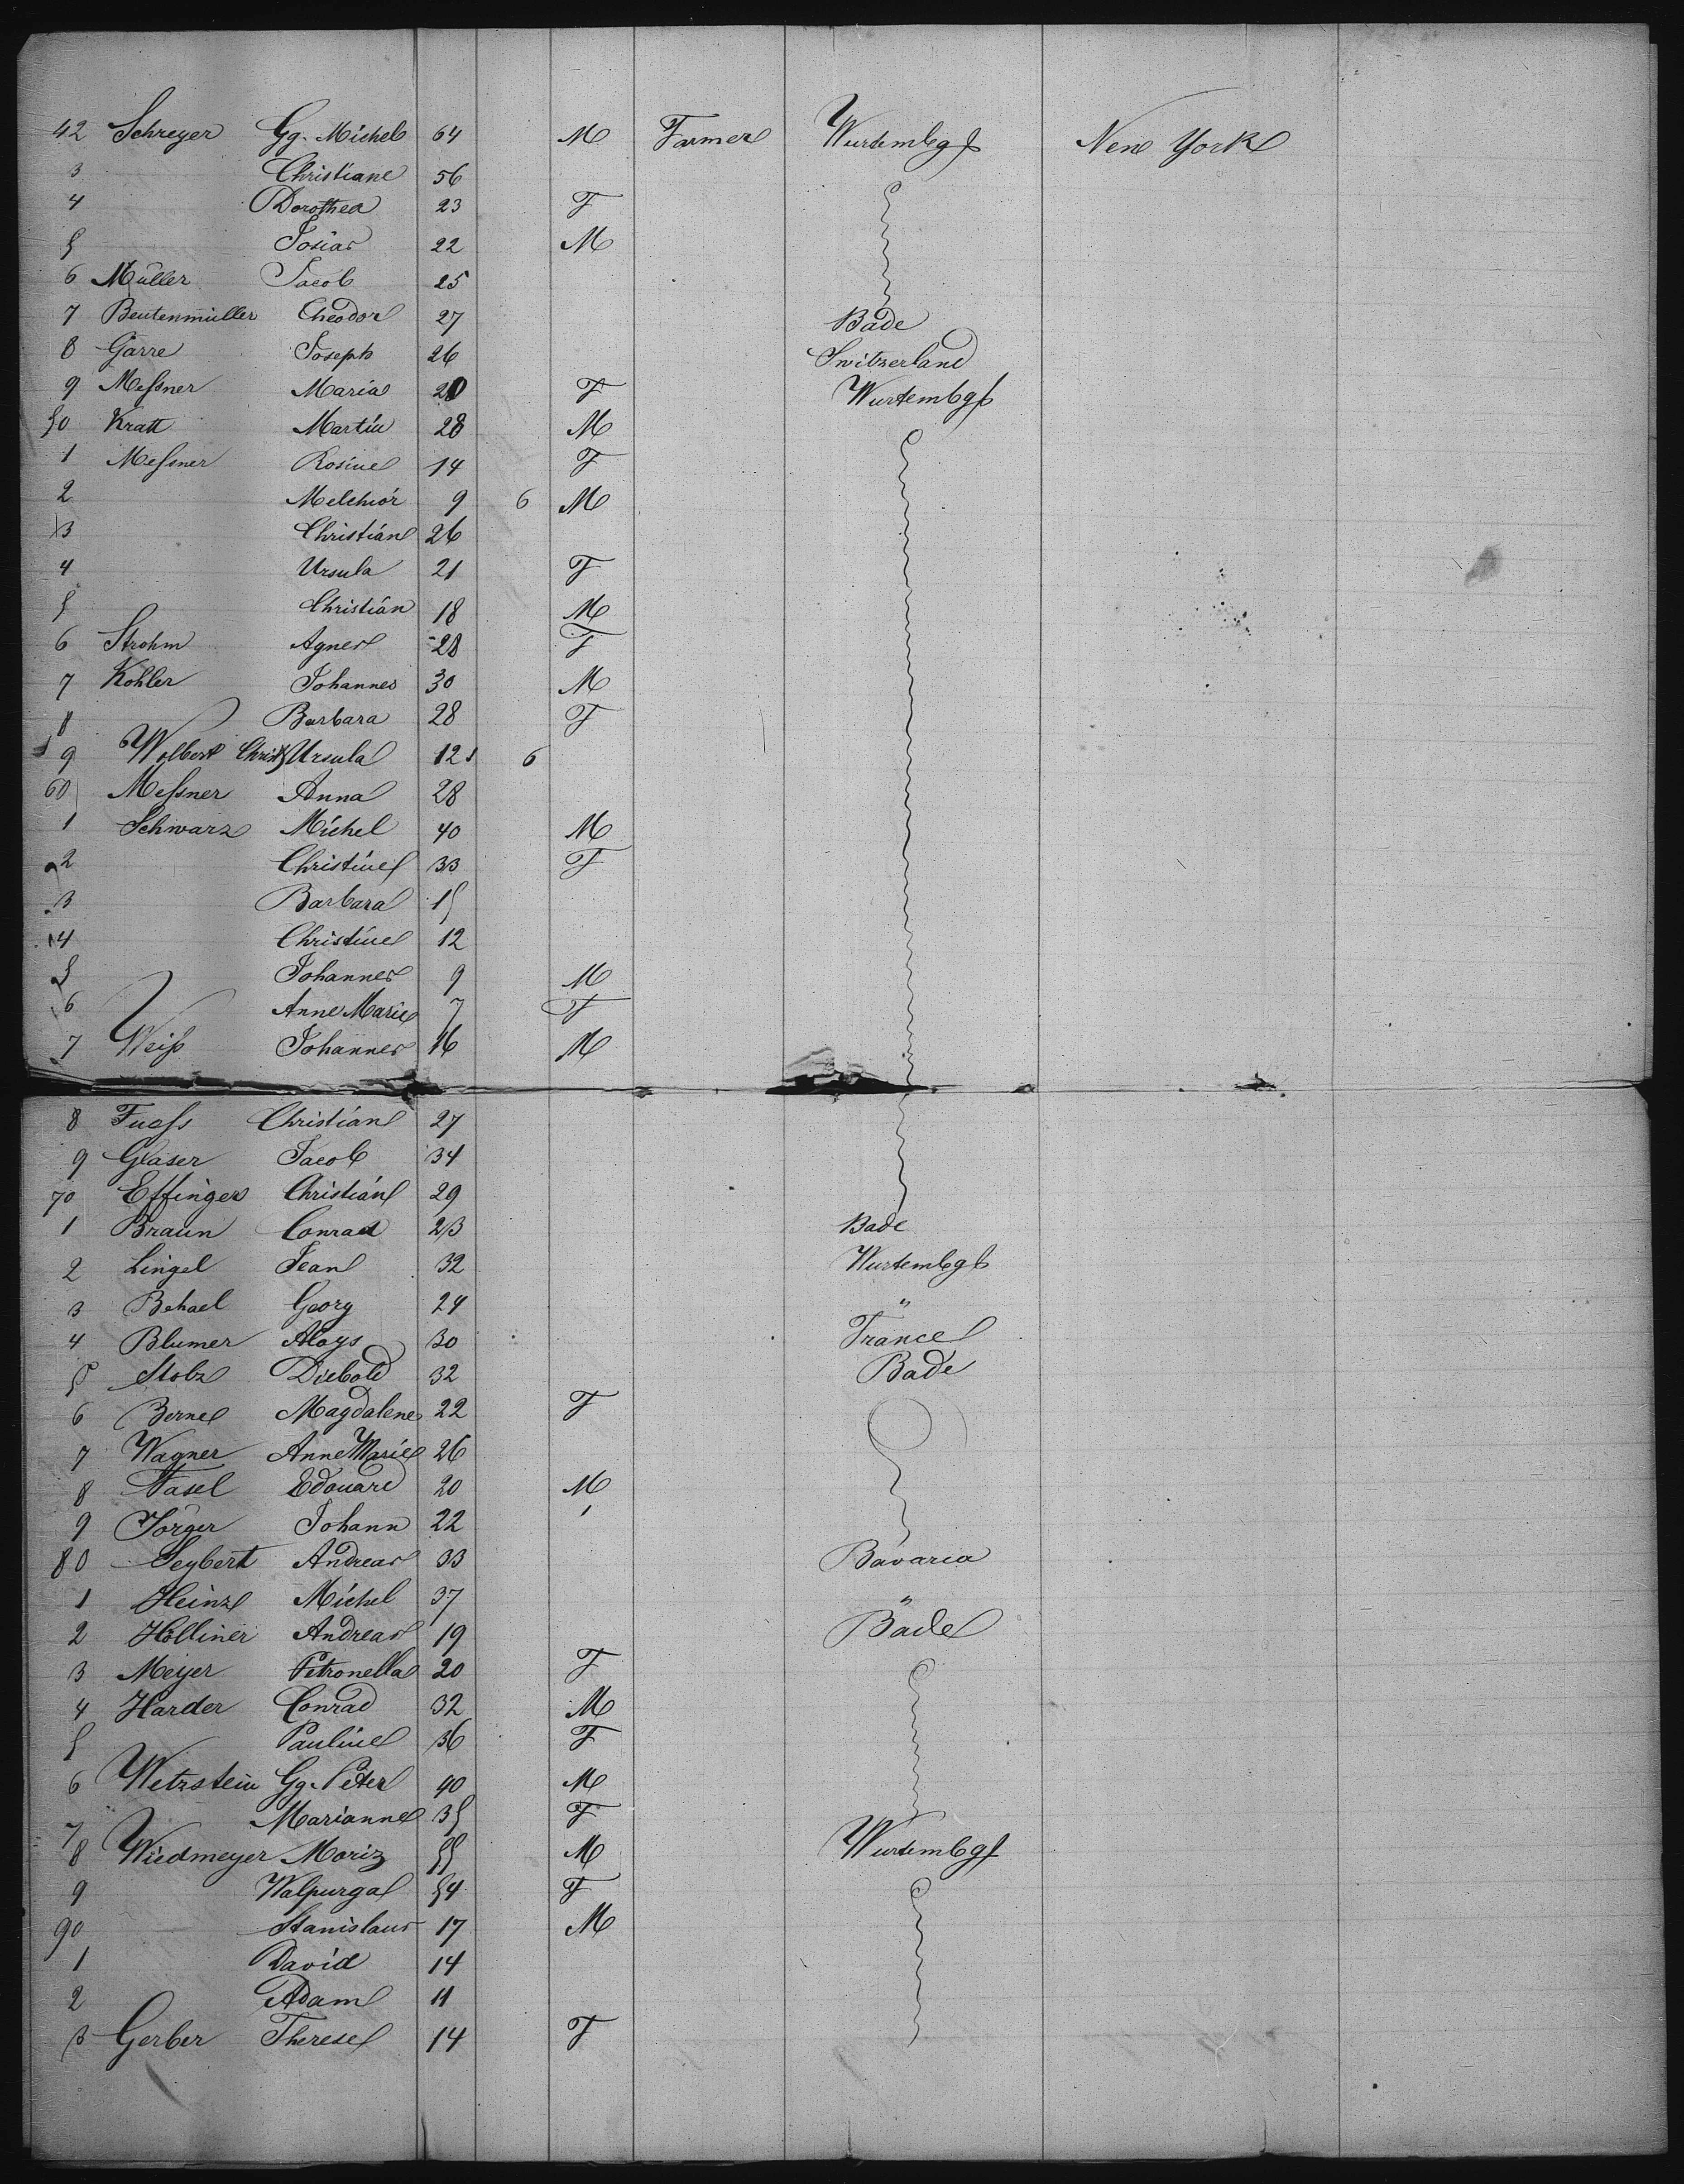 42 Schreyer Gg. Michel 64 M Farmer Wurtembgs New York
3 Christiane 56
4 Dorothea 23 F
5 Josias 22 M
6 Müller Jacob 25
7 Beutenmüller Theodor 27 Bade
8 Garre Joseph 26 Switzerland
9 Meßner Maria 20 F Wurtembgs
50 Kratt Martin 28 M
1 Meßner Rosine 14 F
2 Melchior 9 6 M
3 Christian 26
4 Ursula 21 F
5 Christian 18 M
6 Strohm Agnes 28 F
7 Kohler Johannes 30 M
8 Barbara 28 F
9 Christ Ursula 12 6
60 Meßner Anna 28
1 Schwarz Michel 40 M
2 Christine 33 F
3 Barbara 15
4 Christine 12
5 Johannes 9 M
6 Anne Marie 7 F
7 Weiß Johannes 16 M
8 Fuoss Christian 27
9 Glaser Jacob 34
70 Effinger Christian 29
1 Braun Conrad 23 Bade
2 Lingel Jean 32 Wurtembgs
3 Behael Georg 24 "
4 Blumer Aloys 30 France
5 Stolz Diebold 32 Bade
6 Berne Magdalene 22 F
7 Wagner Anne Marie 26
8 Fasel Edouard 20 M
9 Jörger Johann 22
80 Seybert Andreas 33 Bavaria
1 Heinz Michel 37 "
2 Holliner Andreas 19 Bade
3 Meyer Petronella 20 F
4 Harder Conrad 32 M
5 Pauline 36 F
6 Wetzstein Gg. Peter 40 M
7 Marianne 35 F
8 Wiedmeyer Moriz 55 M Wurtembgs
9 Walpurga 54 F
90 Stanislaus 17 M
1 David 14
2 Adam 11
3 Gerber Therese 14 F